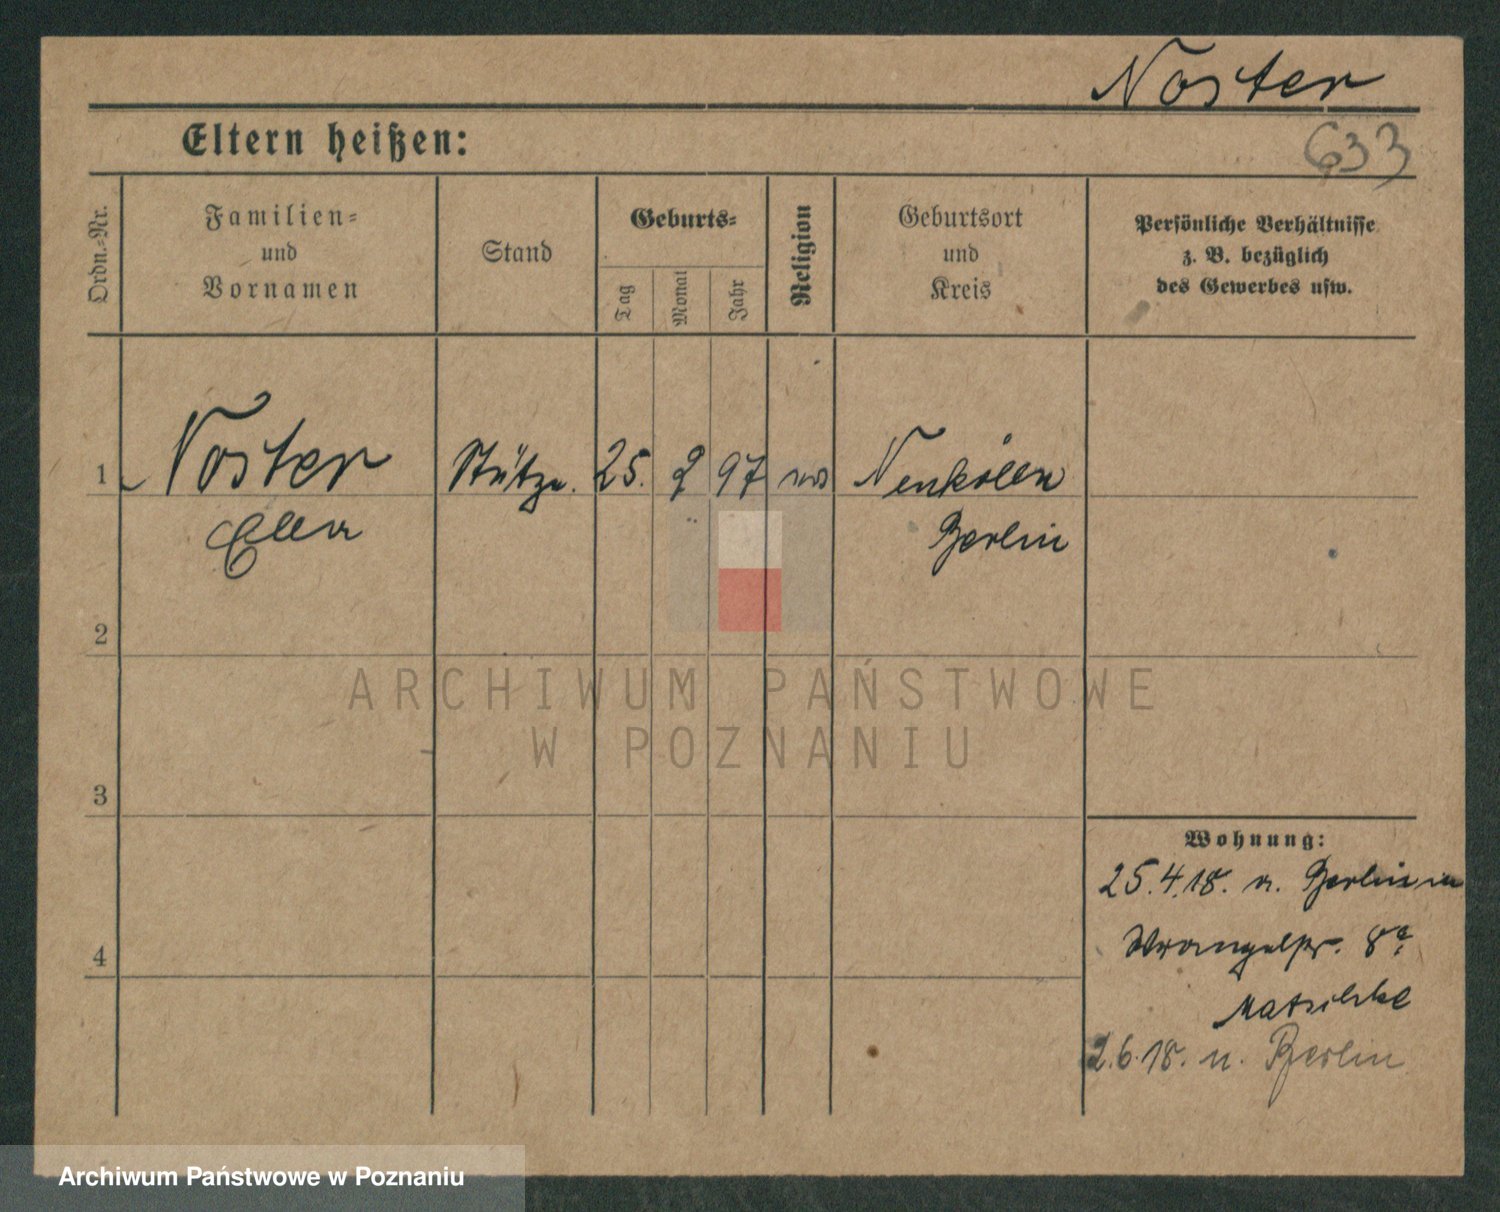 Noster
633
Eltern heißen:
Ordn.-Nr.
Familien-
und
Vornamen
Stand
Geburts-
Tag
Monat
Jahr
Religion
Geburtsort
und
Kreis
Persönliche Verhältnisse
z. B. bezüglich
des Gewerbes usw.
1 Noster Stütze. 25. 2 97 Neukölln
Ella Berlin
2
ARCHIWUM PAŃSTWOWE
W POZNANIU
3
Wohnung:
25.4.18. v. Berlin
Wrangelstr. 8
4
2.6.18. n. Berlin
Archiwum Państwowe w Poznaniu